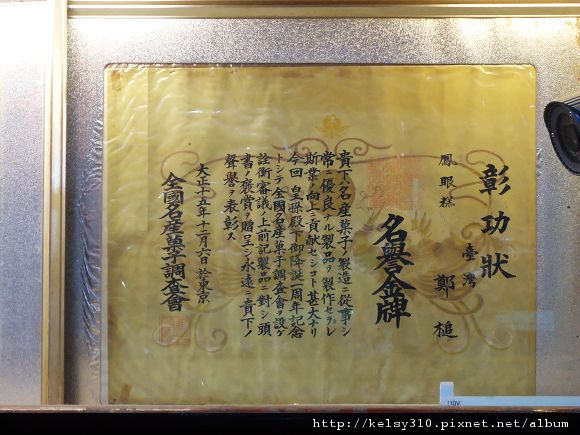 彰功狀
臺灣 鄭槌
鳳眼糕
名譽金牌
貴下ハ名産菓子ノ製造ニ從事シ
常ニ優良ナル製品ヲ製作セラレ
斯業ノ向上ニ貢献セシコト甚大ナリ
今回 皇孫殿下御降誕一周年記念
トシテ全國名産菓子調査會ヲ設ケ
詮衡審議ノ上前記製品ニ對シ頭
書ノ褒賞ヲ贈呈シ永遠ニ貴下ノ
聲譽ヲ表彰ス
大正十五年十二月六日 於東京
全國名産菓子調査會
110V
http://kelsy310.pixnet.net/album